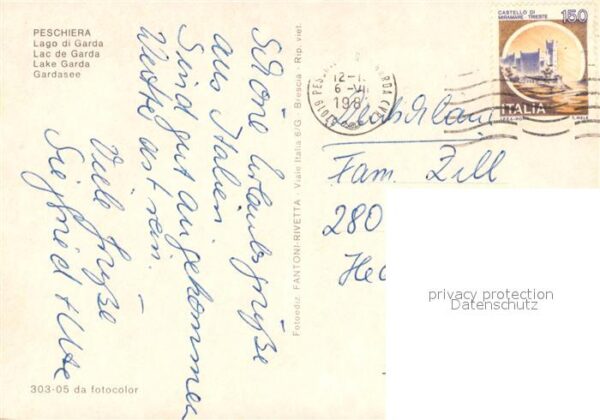 PESCHIERA
Lago di Garda
Lac de Garda
Lake Garda
Gardasee
Schöne Urlaubsgrüße
aus Italien.
Sind gut angekommen
Wetter ist
Viele Grüße
Siegfried + Ute
303-05 da fotocolor
Fotoediz. FANTONI-RIVETTA - Viale Italia 6/G - Brescia - Rip. viet.
37019 PESCHIERA
12-
6 -VII
198
CASTELLO DI
MIRAMARE TRIESTE
150
ITALIA
Fam. Zill
280
He
privacy protection
Datenschutz